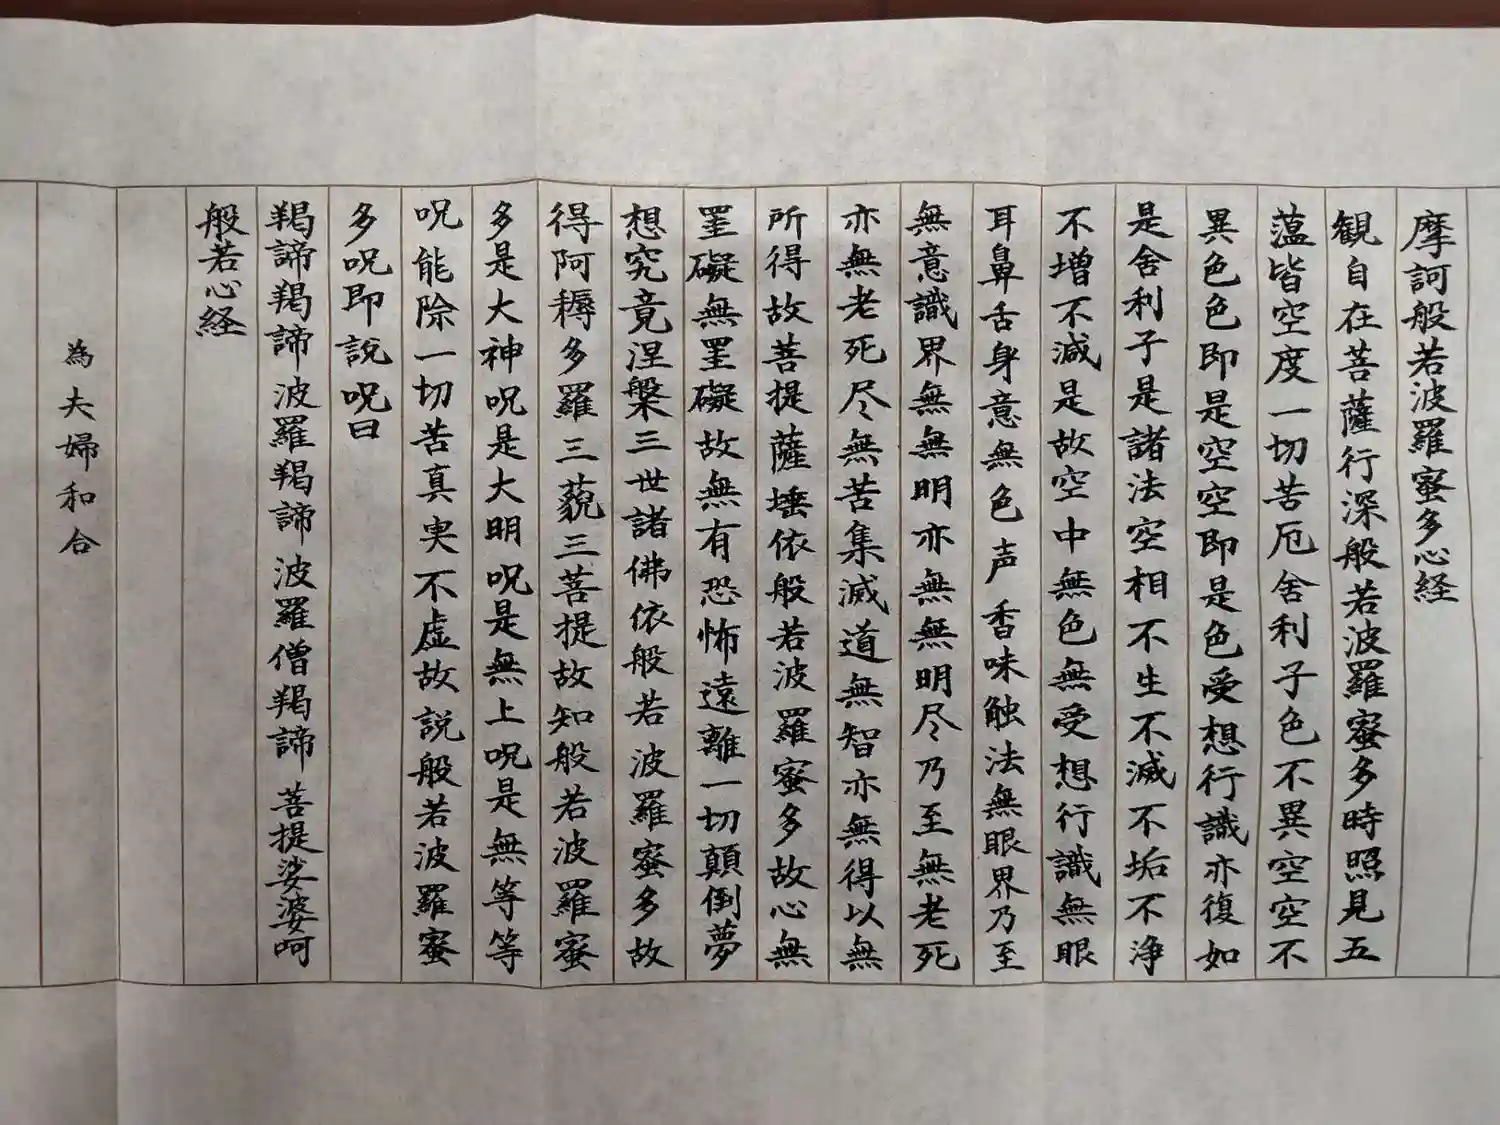 摩訶般若波羅蜜多心経
観自在菩薩行深般若波羅蜜多時照見五
薀皆空度一切苦厄舎利子色不異空空不
異色色即是空空即是色受想行識亦復如
是舎利子是諸法空相不生不滅不垢不浄
不増不減是故空中無色無受想行識無眼
耳鼻舌身意無色声香味触法無眼界乃至
無意識界無無明亦無無明尽乃至無老死
亦無老死尽無苦集滅道無智亦無得以無
所得故菩提薩埵依般若波羅蜜多故心無
罣礙無罣礙故無有恐怖遠離一切顛倒夢
想究竟涅槃三世諸佛依般若波羅蜜多故
得阿耨多羅三藐三菩提故知般若波羅蜜
多是大神呪是大明呪是無上呪是無等等
呪能除一切苦真実不虚故説般若波羅蜜
多呪即説呪曰
羯諦羯諦 波羅羯諦 波羅僧羯諦 菩提娑婆呵
般若心経
為夫婦和合